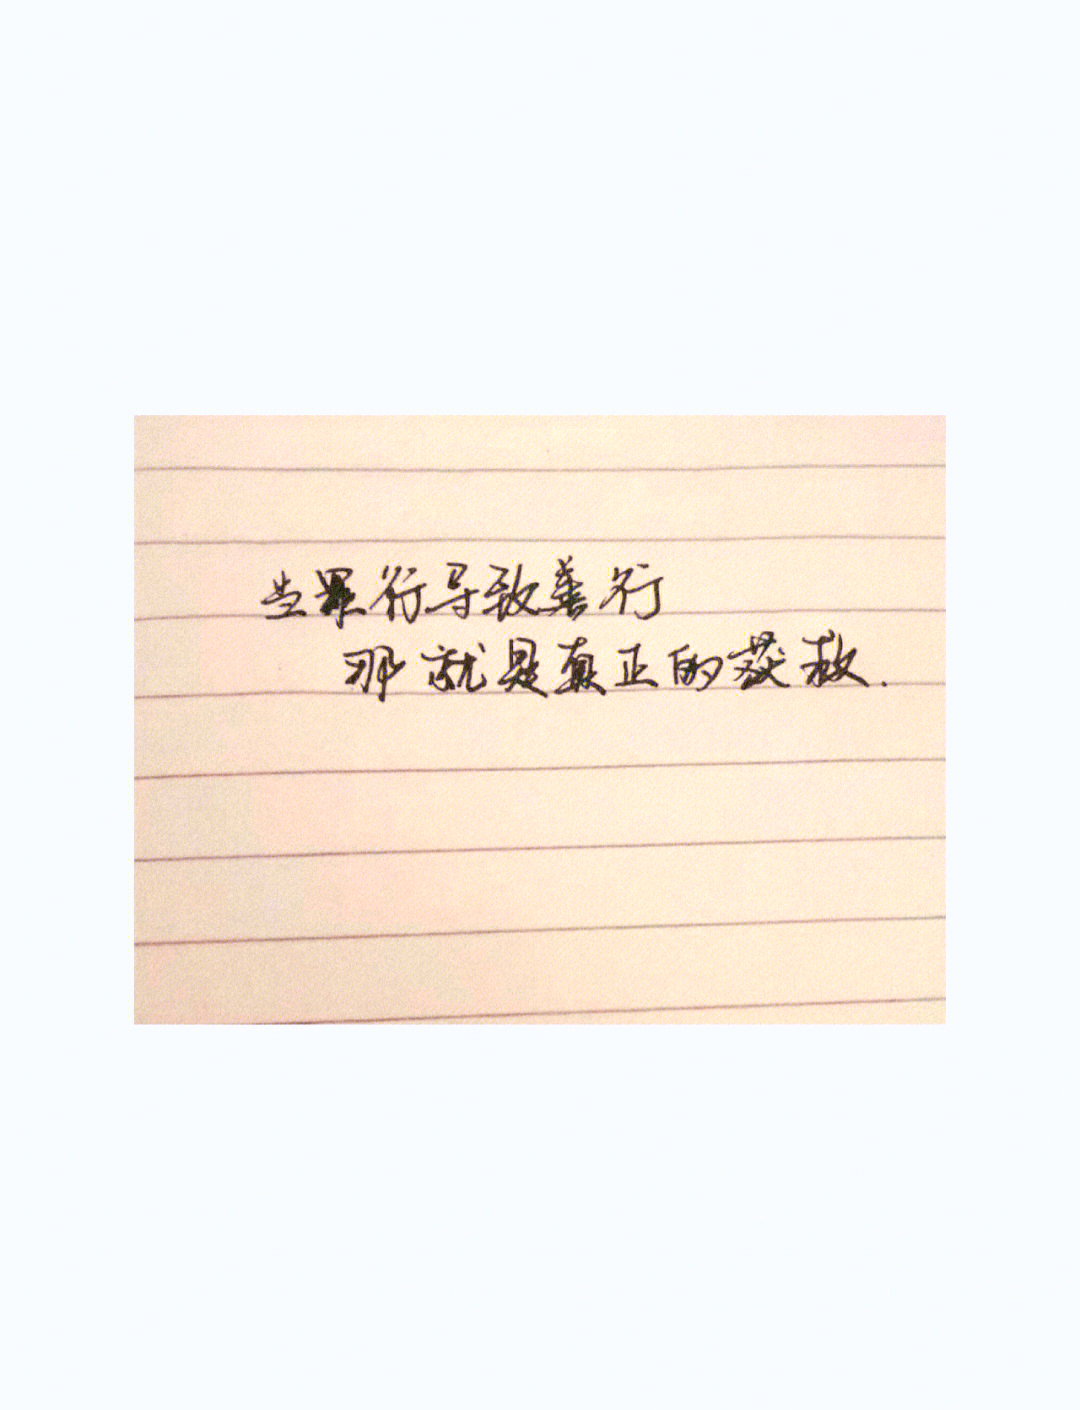 当罪行导致善行
那就是真正的获救.